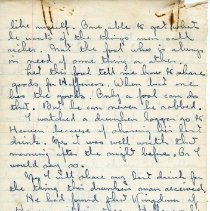 like myself. One able to get what
he wants of the things men call
riches. And the fool who is always
in need of some thing or other.
Let this fool tell me how to share
goods for Happiness. When that we
has the goods. Only a fool can do
that. But he can never be robbed.
I watched a drunken logger go to
Heaven because of sharing his last
drinks. Yes it was well worth that
morning after the night before. Or I
would say so.
Yes, I'd share my last drink for
the thing this drunken man received
He had found that Kingdom of